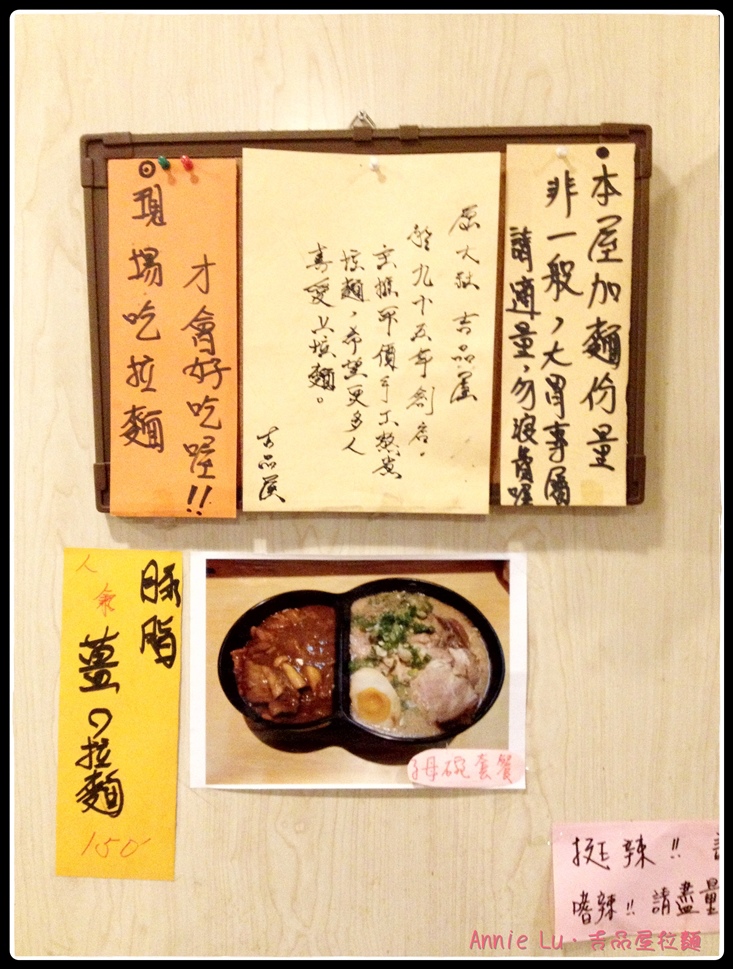 ●本屋加麵份量
非一般，大胃專屬
請適量，勿浪費喔
吉品屋
於九十五年創店。
主推平價手工熬煮
拉麵，希望更多人
喜愛上拉麵。
吉品屋
⊙現場吃拉麵
才會好吃喔!!
豚脂
人氣
薑の拉麵
150
子母碗套餐
挺辣!!
嗜辣!! 請盡量
Annie Lu·吉品屋拉麵